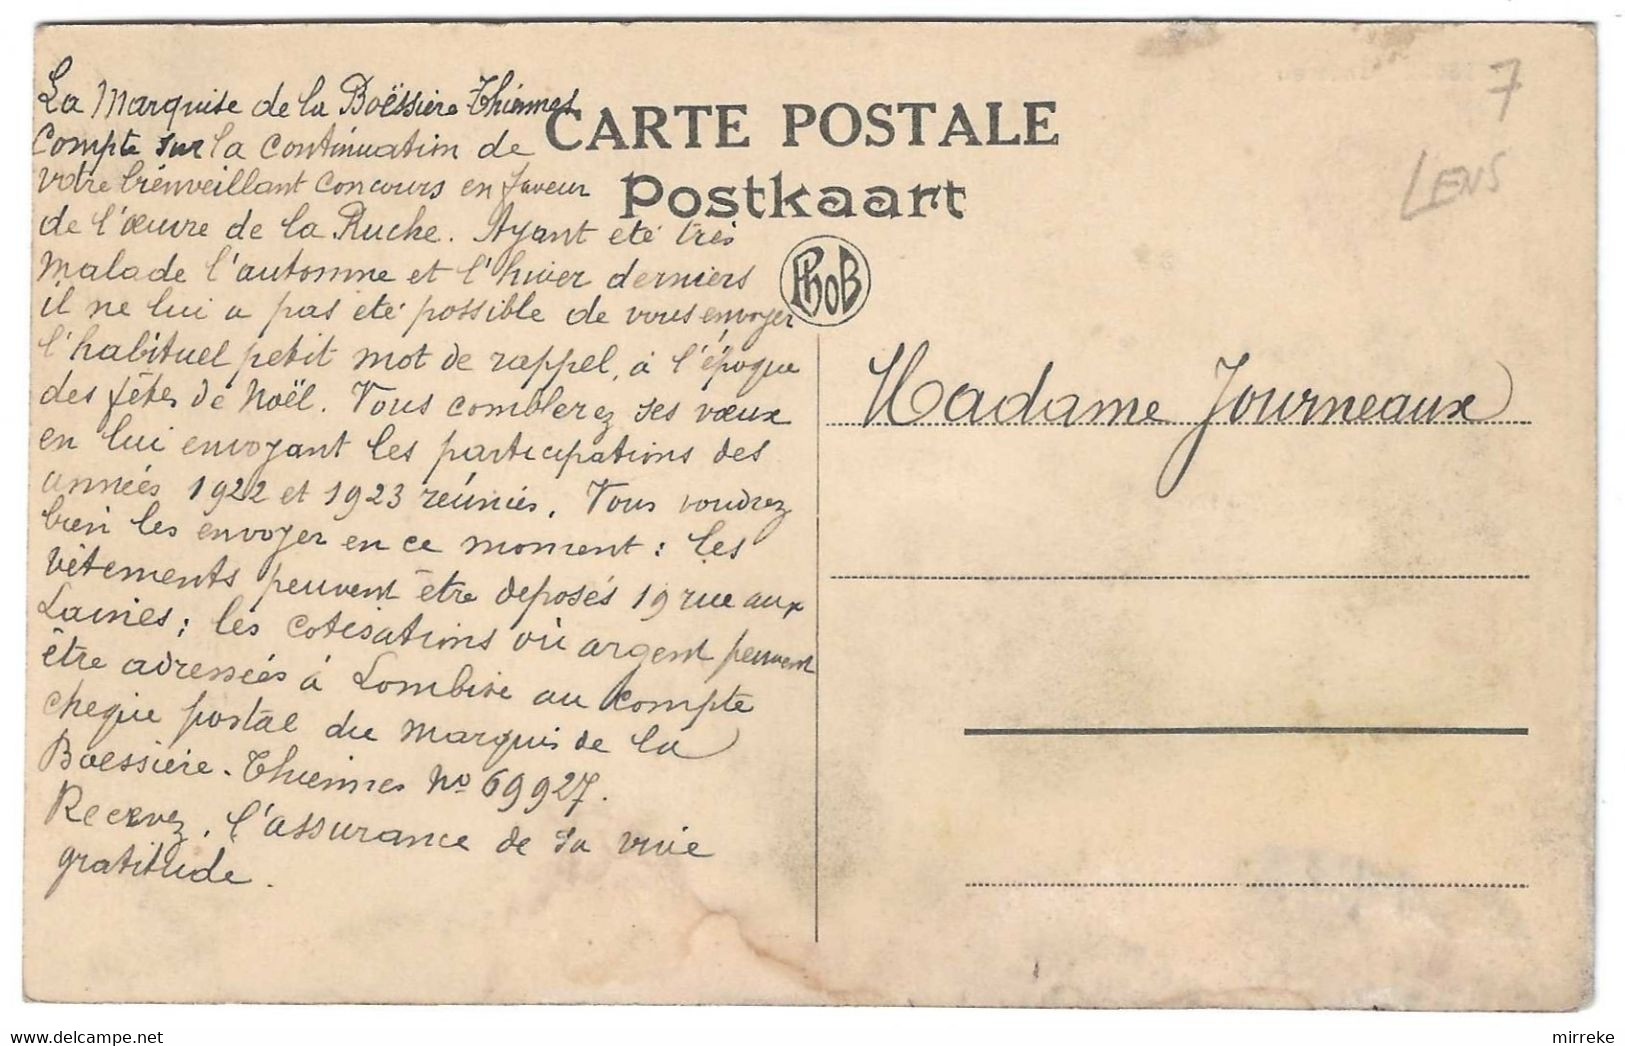 La Marquise de la Boëssière Thiennes
Compte sur la continuation de
votre bienveillant concours en faveur
de l'œuvre de la Ruche. Ayant été très
malade l'automne et l'hiver derniers
il ne lui a pas été possible de vous envoyer
l'habituel petit mot de rappel, à l'époque
des fêtes de Noël. Vous comblerez ses vœux
en lui envoyant les participations des
années 1922 et 1923 réunies. Vous voudrez
bien les envoyer en ce moment : les
vêtements peuvent être déposés 19 rue aux
Laines ; les cotisations où argent peuvent
être adressées à Lombise au compte
chèque postal du Marquis de la
Boessière-Thiennes No 69927.
Recevez, l'assurance de sa vive
gratitude.
CARTE POSTALE
Postkaart
PhoB
7
LENS
Madame Journeaux
mirreke